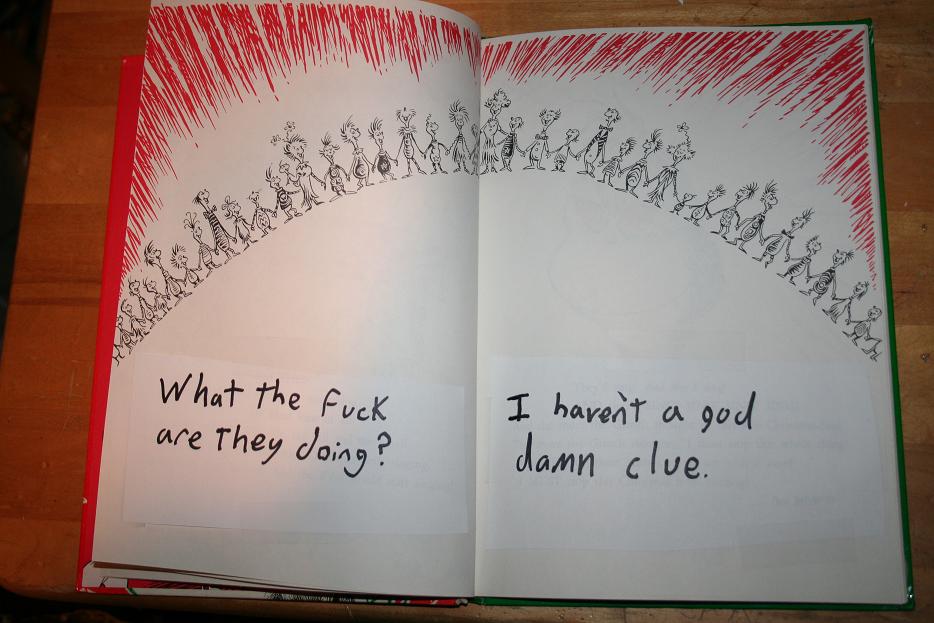 What the Fuck
are they doing?
I haven't a god
damn clue.